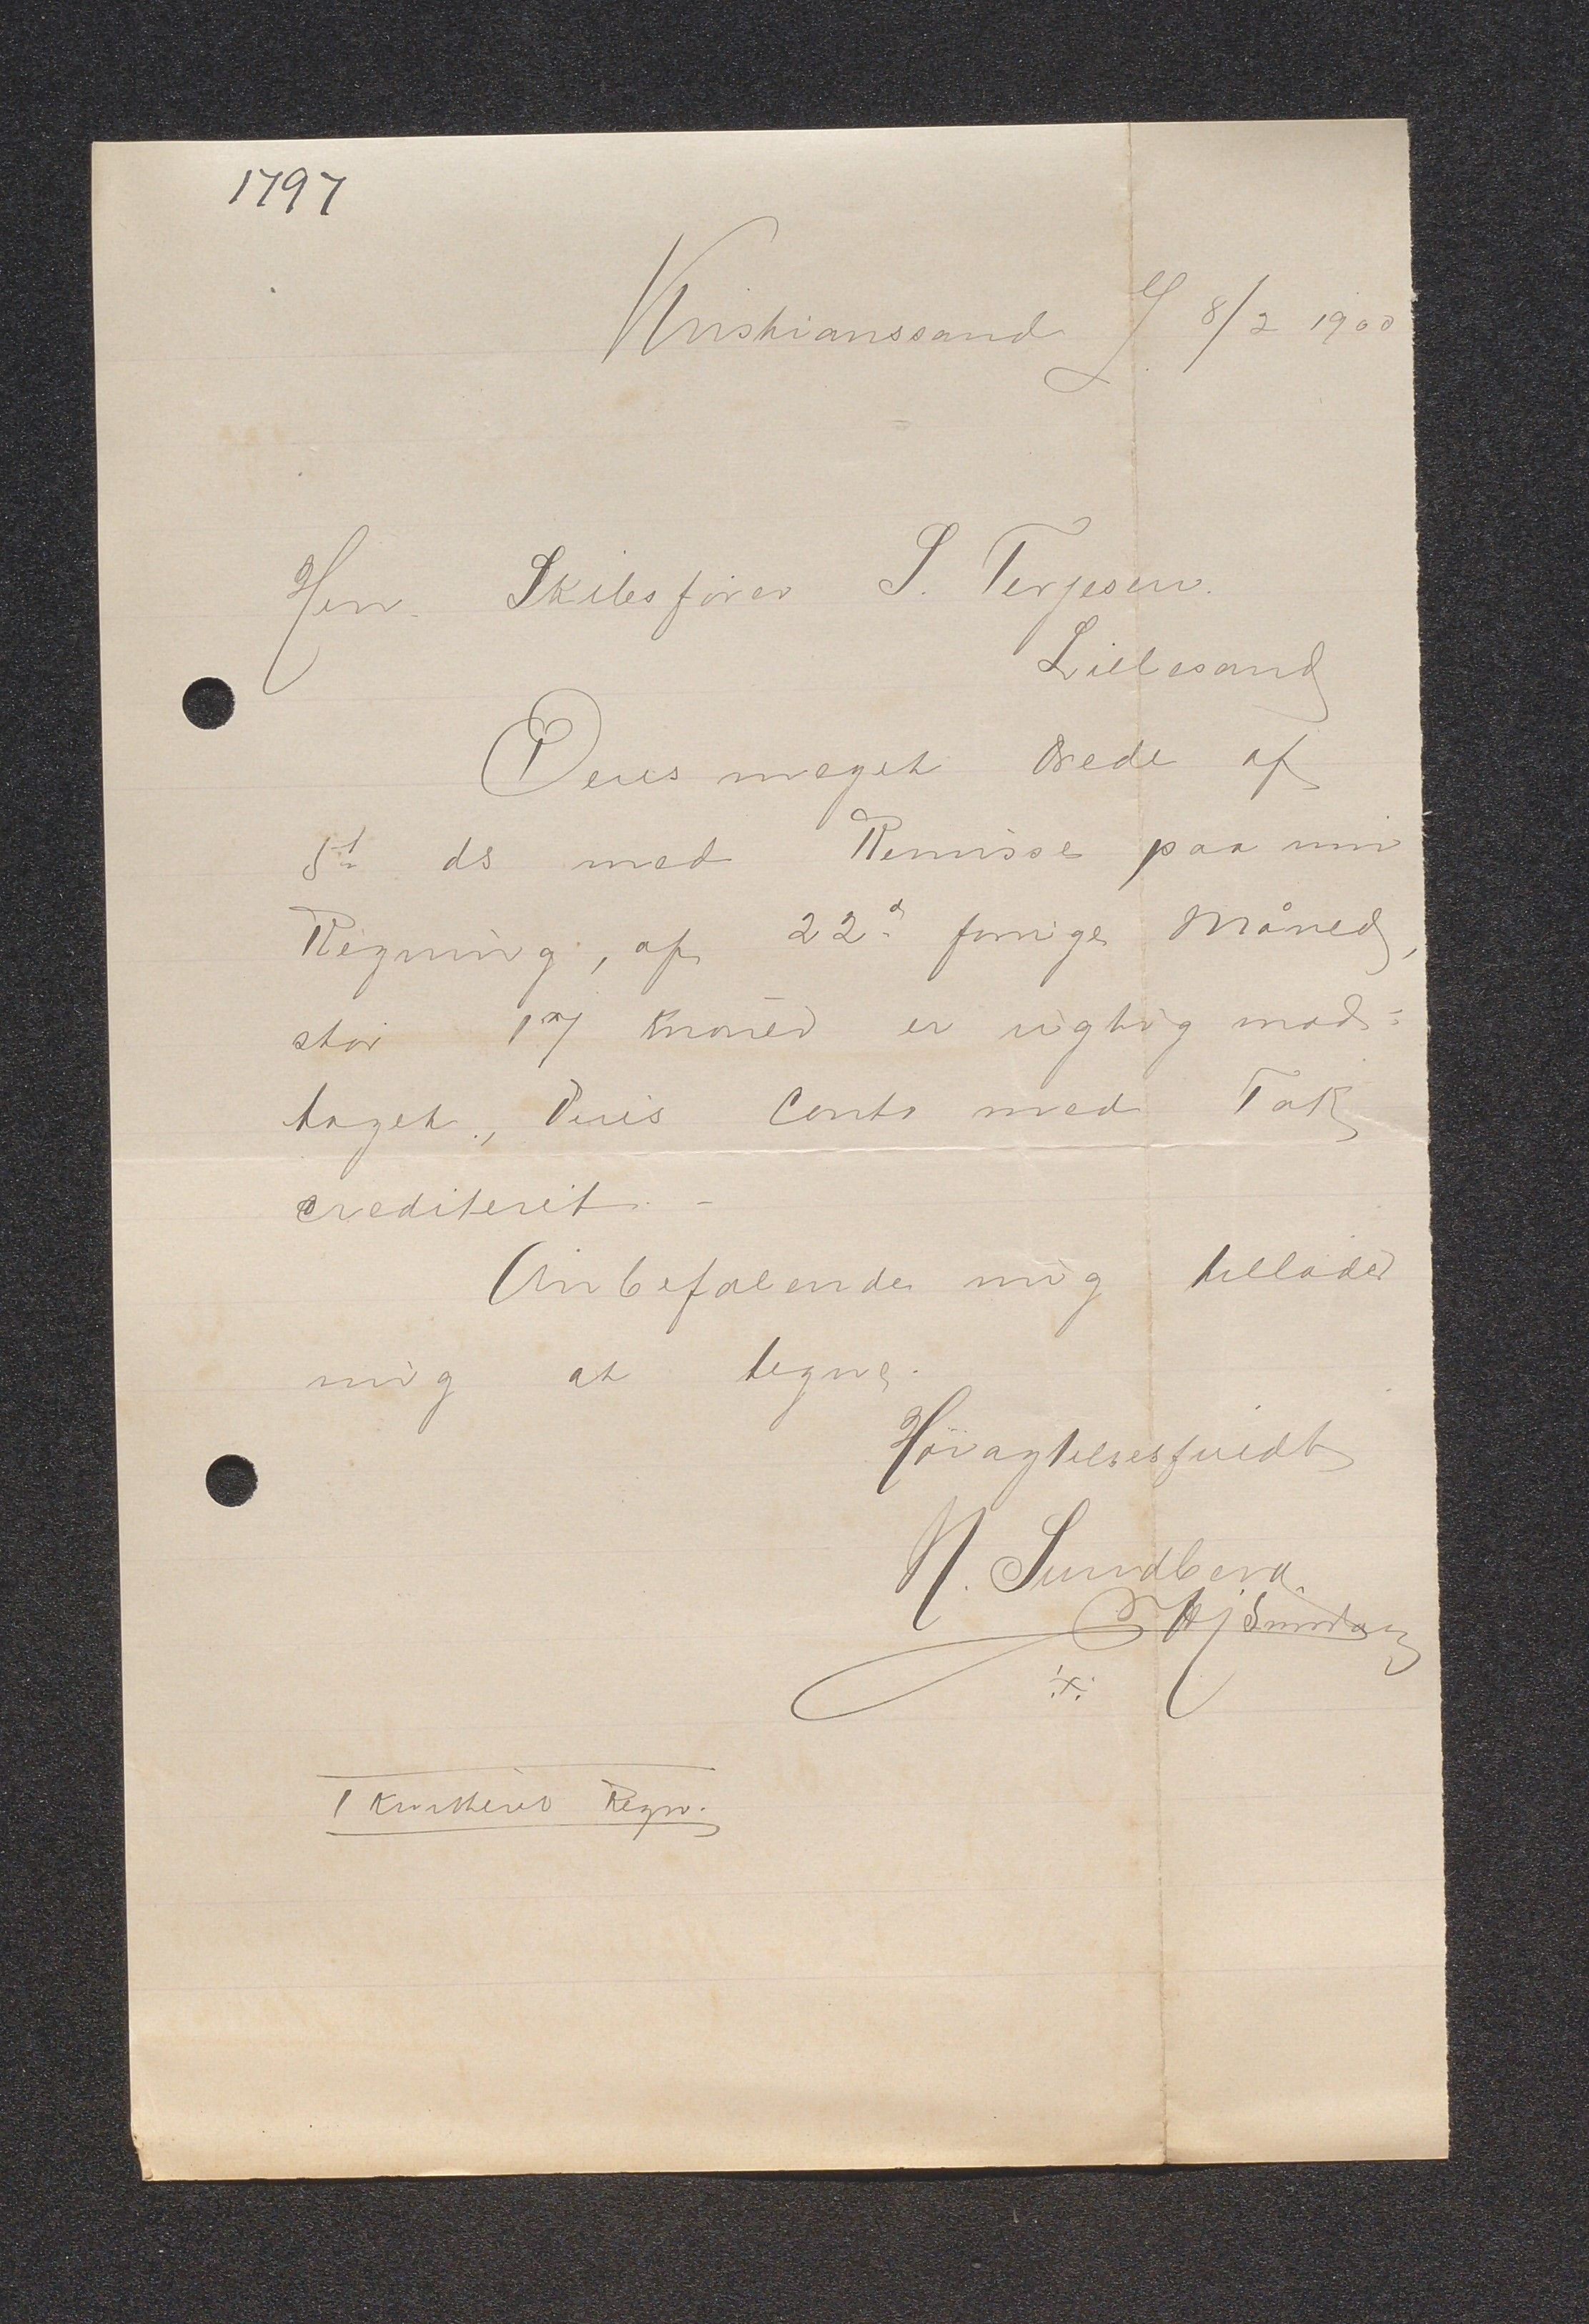 1797
Kristianssand S 8/2 1900
Herr. Skibsfører S. Terjesen.
Lillesand
Deres meget Ærede af
5t ds med Remisse paa min
Regning, af 22d forrige Måned,
stor 17 Kroner er rigtig mod=
taget., Deres Conto med Tak
crediteret. -
Anbefalende mig tillader
mig at tegne.
Høiagtelsesfuldt
N. Sundberg.
1 Kvitteret Regn.